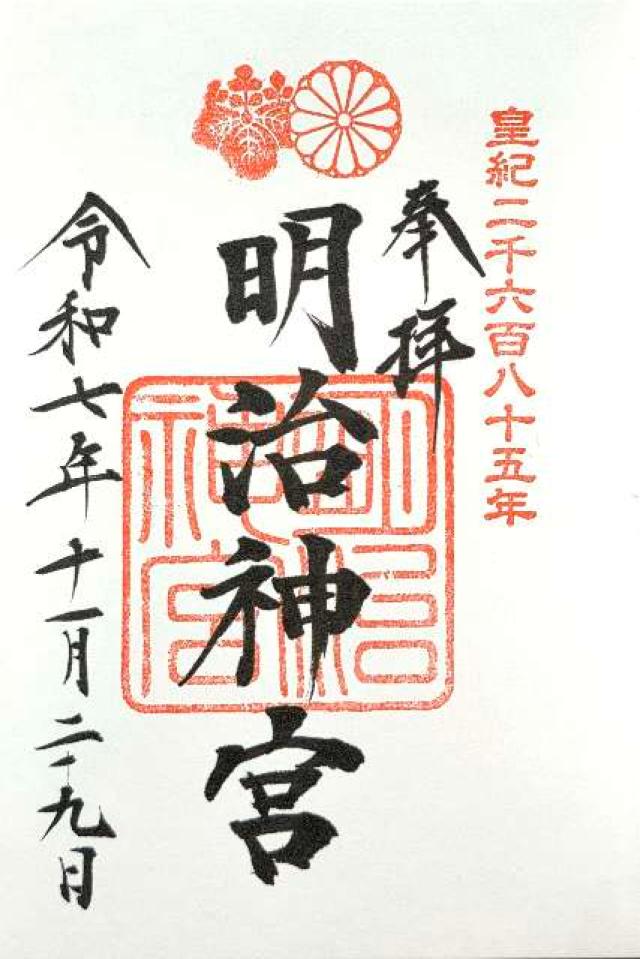 皇紀二千六百八十五年
奉拝
明治神宮
明治
神宮
令和七年十一月二十九日